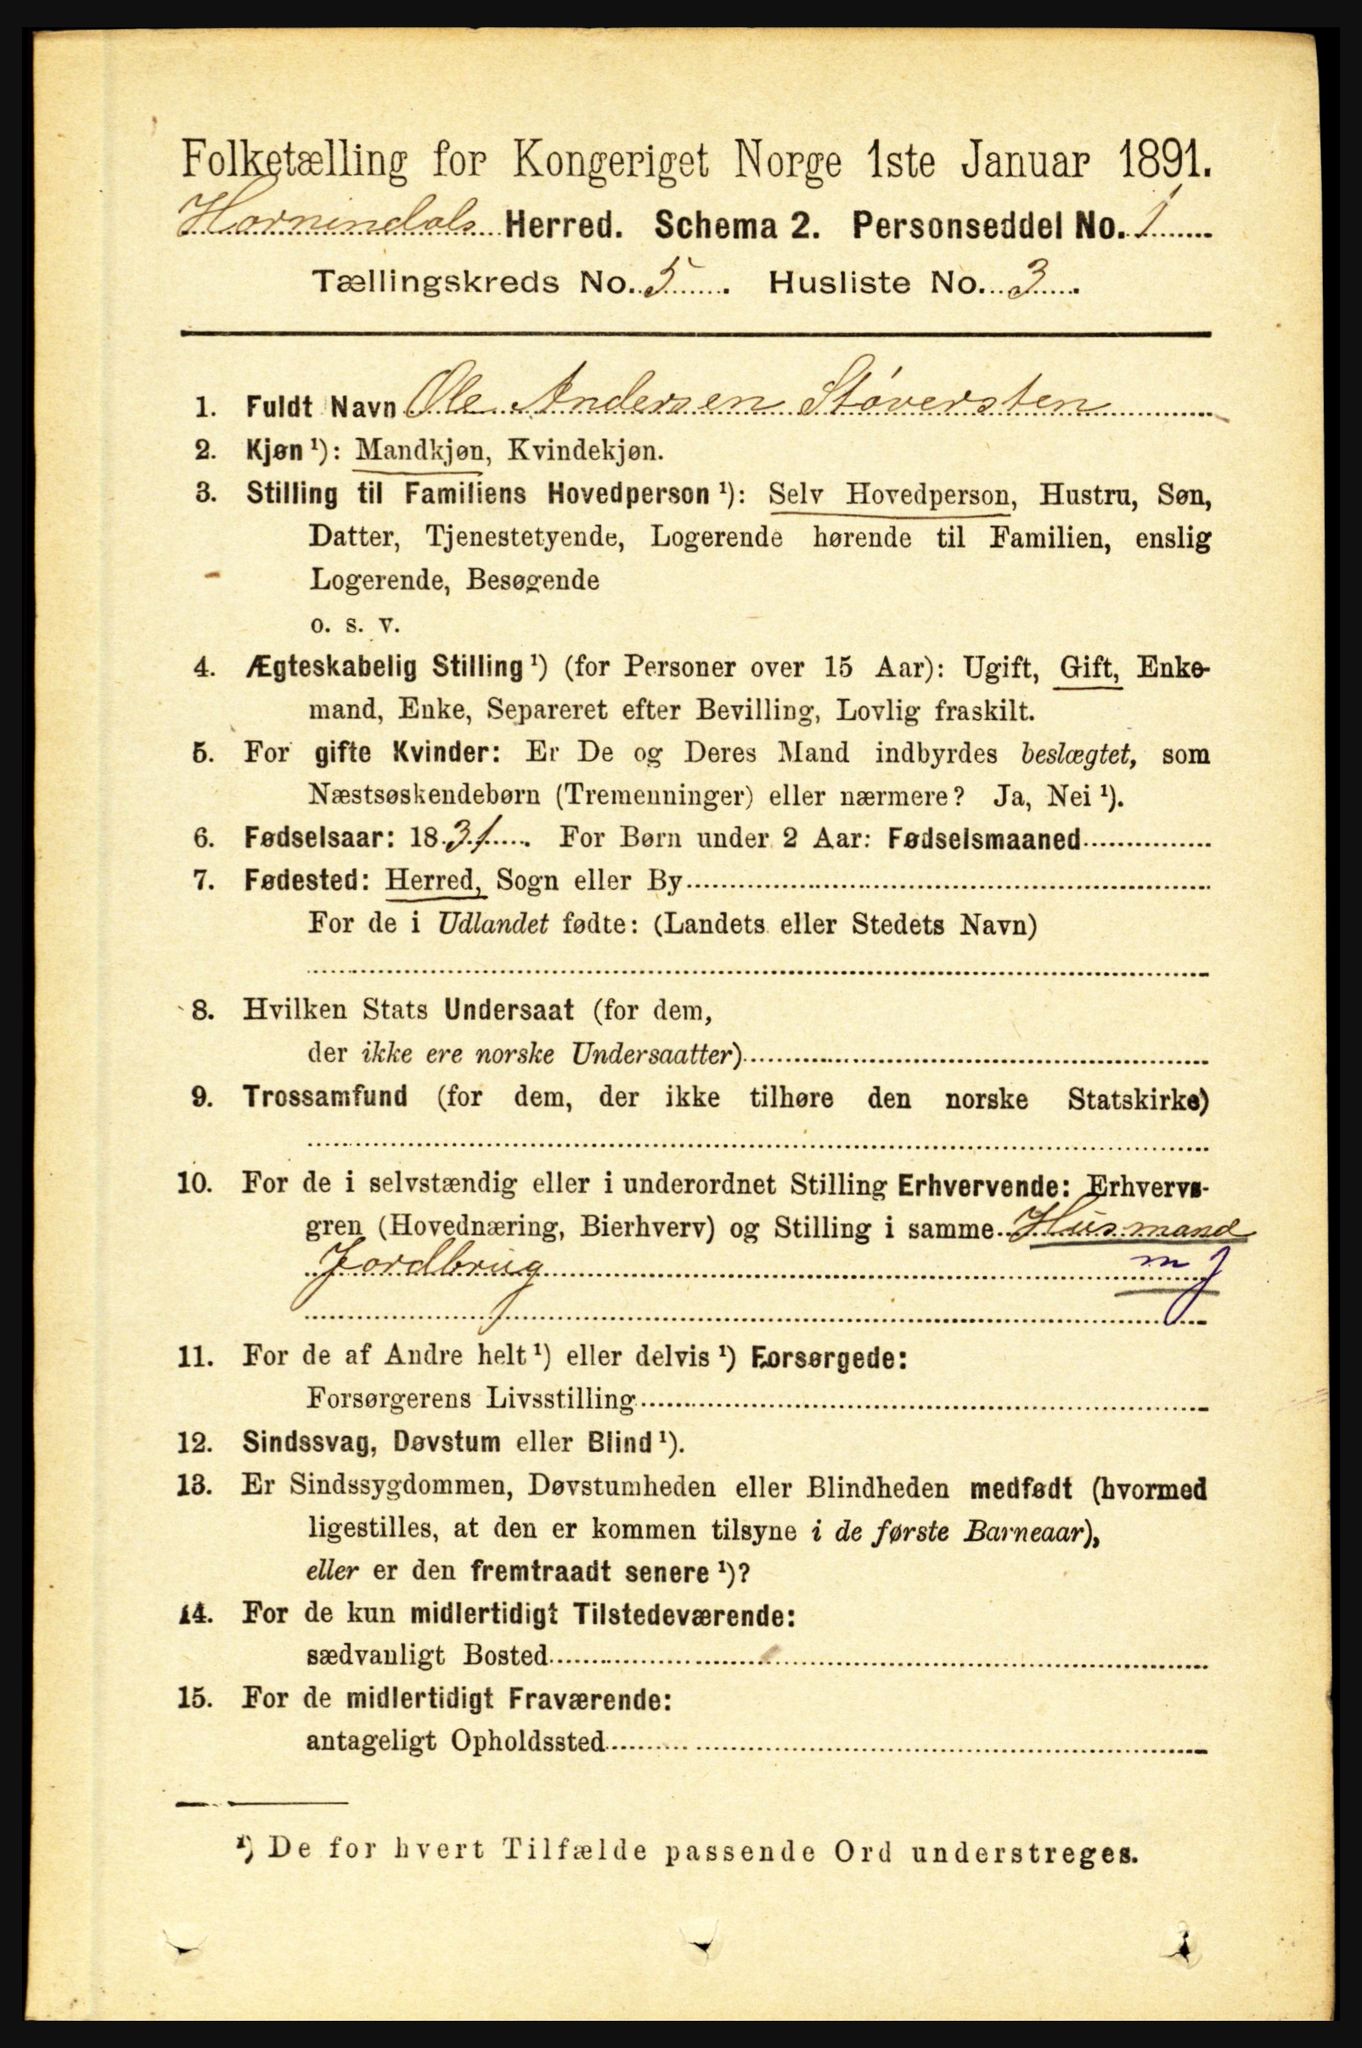 Folketælling for Kongeriget Norge 1ste Januar 1891.
Hornindals Herred. Schema 2. Personseddel No. 1
Tællingskreds No. 5. Husliste No. 3.
1. Fuldt Navn Ole Andersen Støversten
2. Kjøn ¹): Mandkjøn, Kvindekjøn.
3. Stilling til Familiens Hovedperson ¹): Selv Hovedperson, Hustru, Søn,
Datter, Tjenestetyende, Logerende hørende til Familien, enslig
Logerende, Besøgende
o. s. v.
4. Ægteskabelig Stilling ¹) (for Personer over 15 Aar): Ugift, Gift, Enke-
mand, Enke, Separeret efter Bevilling, Lovlig fraskilt.
5. For gifte Kvinder: Er De og Deres Mand indbyrdes beslægtet, som
Næstsøskendebørn (Tremenninger) eller nærmere? Ja, Nei ¹).
6. Fødselsaar: 1831. For Børn under 2 Aar: Fødselsmaaned
7. Fødested: Herred, Sogn eller By
For de i Udlandet fødte: (Landets eller Stedets Navn)
8. Hvilken Stats Undersaat (for dem,
der ikke ere norske Undersaatter)
9. Trossamfund (for dem, der ikke tilhøre den norske Statskirke)
10. For de i selvstændig eller i underordnet Stilling Erhvervende: Erhvervs-
gren (Hovednæring, Bierhverv) og Stilling i samme Husmand
Jordbrug m j
11. For de af Andre helt ¹) eller delvis ¹) Forsørgede:
Forsørgerens Livsstilling
12. Sindssvag, Døvstum eller Blind ¹).
13. Er Sindssygdommen, Døvstumheden eller Blindheden medfødt (hvormed
ligestilles, at den er kommen tilsyne i de første Barneaar),
eller er den fremtraadt senere ¹)?
14. For de kun midlertidigt Tilstedeværende:
sædvanligt Bosted
15. For de midlertidigt Fraværende:
antageligt Opholdssted
¹) De for hvert Tilfælde passende Ord understreges.